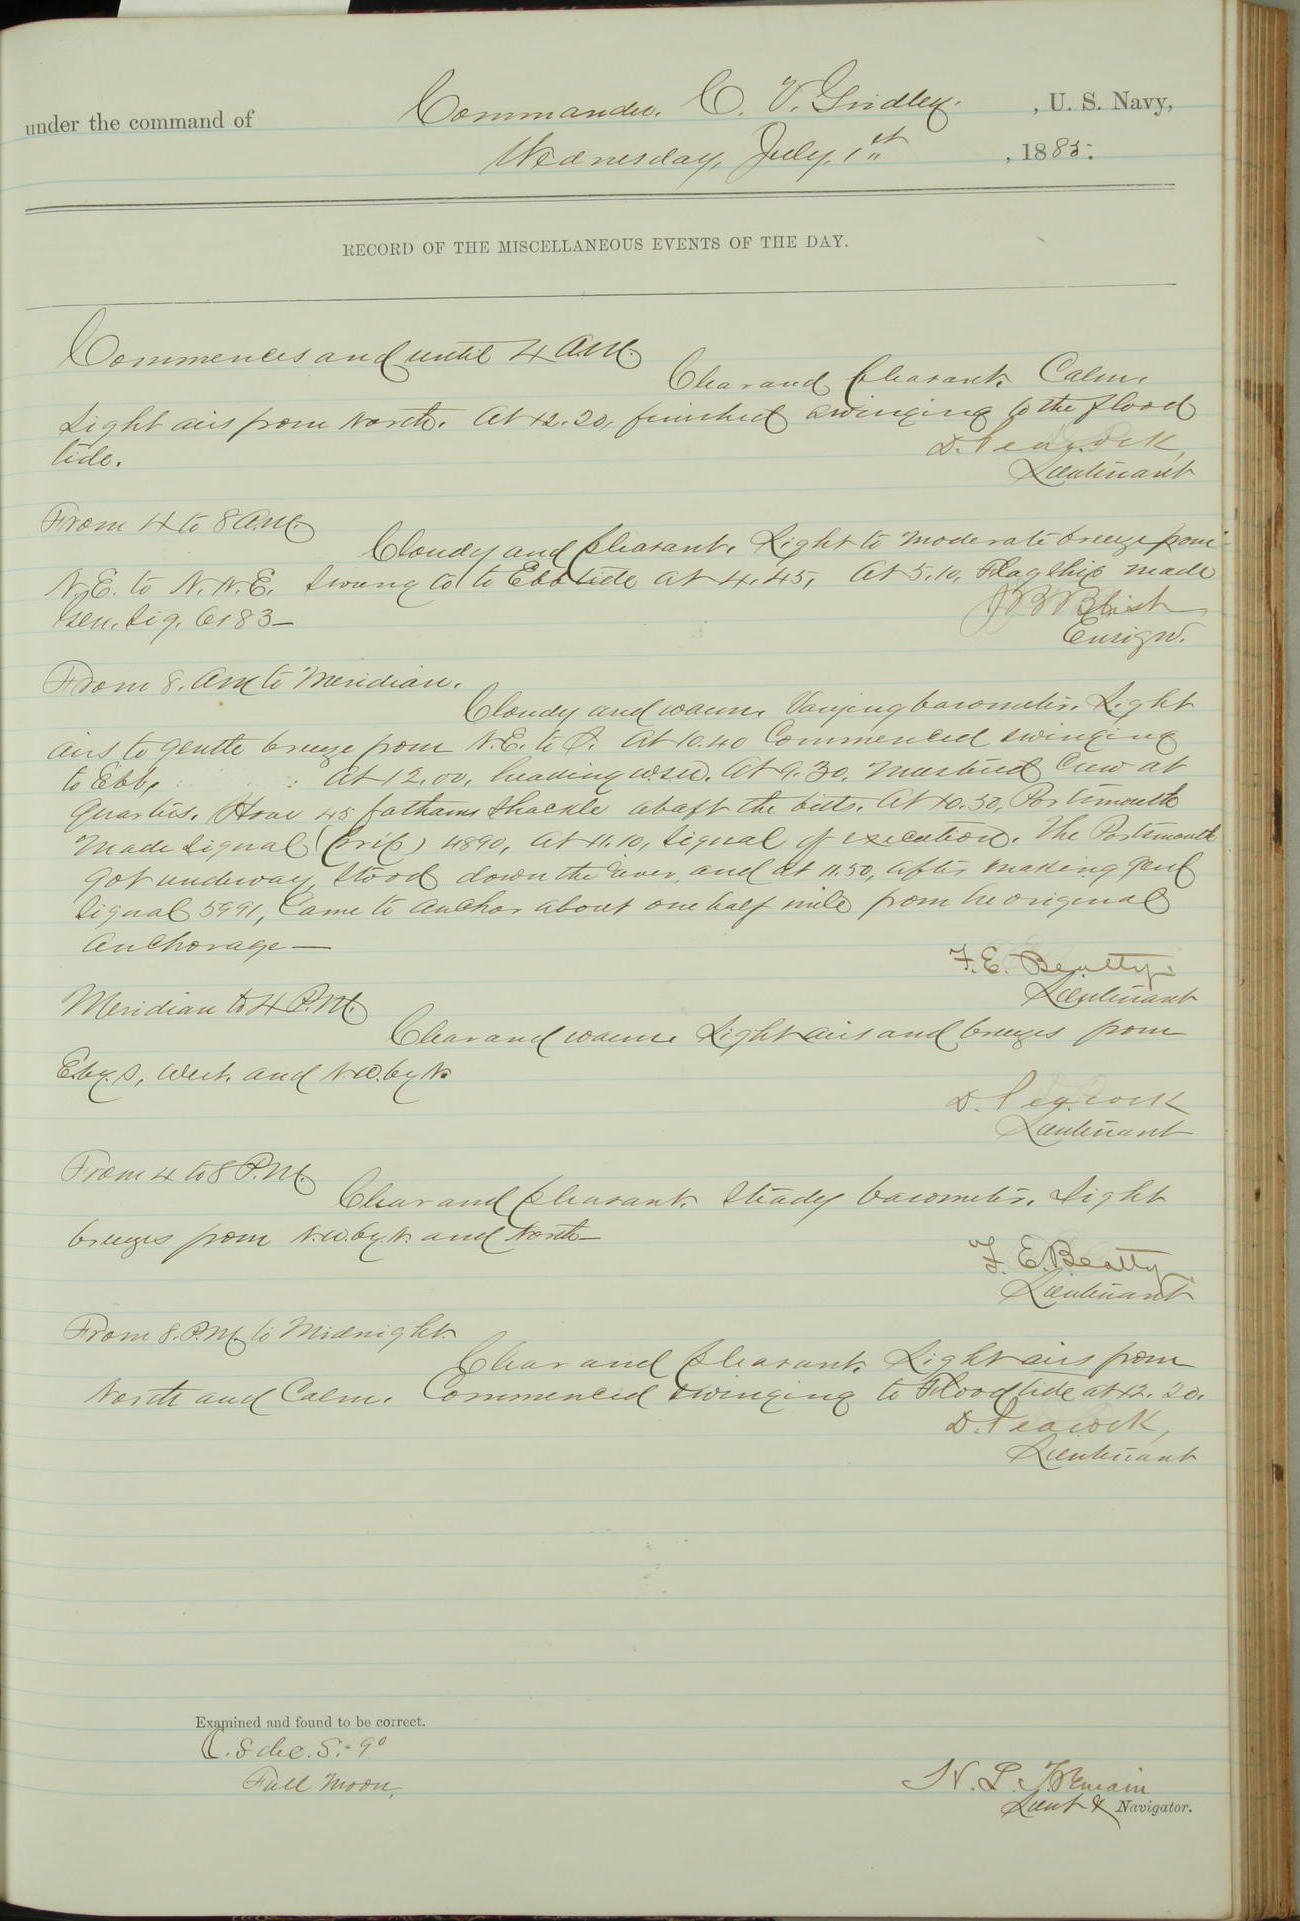 under the command of Commander. C. V. Gridley. , U. S. Navy,
Wednesday, July, 1st , 1885.
RECORD OF THE MISCELLANEOUS EVENTS OF THE DAY.
Commences and until 4 A.M.
Clear and pleasant. Calm.
Light airs from North. At 12.20, finished swinging to the flood
tide.
D. Peacock,
Lieutenant
From 4 to 8 A.M.
Cloudy and pleasant. Light to moderate breeze from
N.E. to N.N.E. Swung to to Ebb tide at 4.45, At 5.10, Flagship made
Gen. Sig. 6183—
J B Blish
Ensign.
From 8. A.M. to Meridian.
Cloudy and warm. Varying barometer. Light
airs to gentle breeze from N.E. to S. At 10.40 Commenced swinging
to Ebb, At 12.00, heading W.S.W. At 9.30, Mustered Crew at
quarters. Hove 45 fathoms shackle abaft the bitts. At 10.50, Portsmouth
made Signal (prep) 4890, At 11.10, Signal of execution. The Portsmouth
got underway, stood down the river, and at 11.50, after making genl
Signal 5991, Came to anchor about one half mile from her original
anchorage—
F. E. Beatty.
Lieutenant
Meridian to 4 P.M.
Clear and warm. Light airs and breezes from
E.by.S, West. and N.W.by N.
D. Peacock
Lieutenant
From 4 to 8 P.M.
Clear and pleasant. Steady barometer. Light
breezes from N.W.by.N. and North—
F. E. Beatty
Lieutenant
From 8. P.M. to Midnight.
Clear and pleasant. Light airs from
North and Calm. Commenced swinging to Flood tide at 12.20.
D. Peacock,
Lieutenant
Examined and found to be correct.
dec. S. 9°
Full Moon,
Lieut & Navigator.